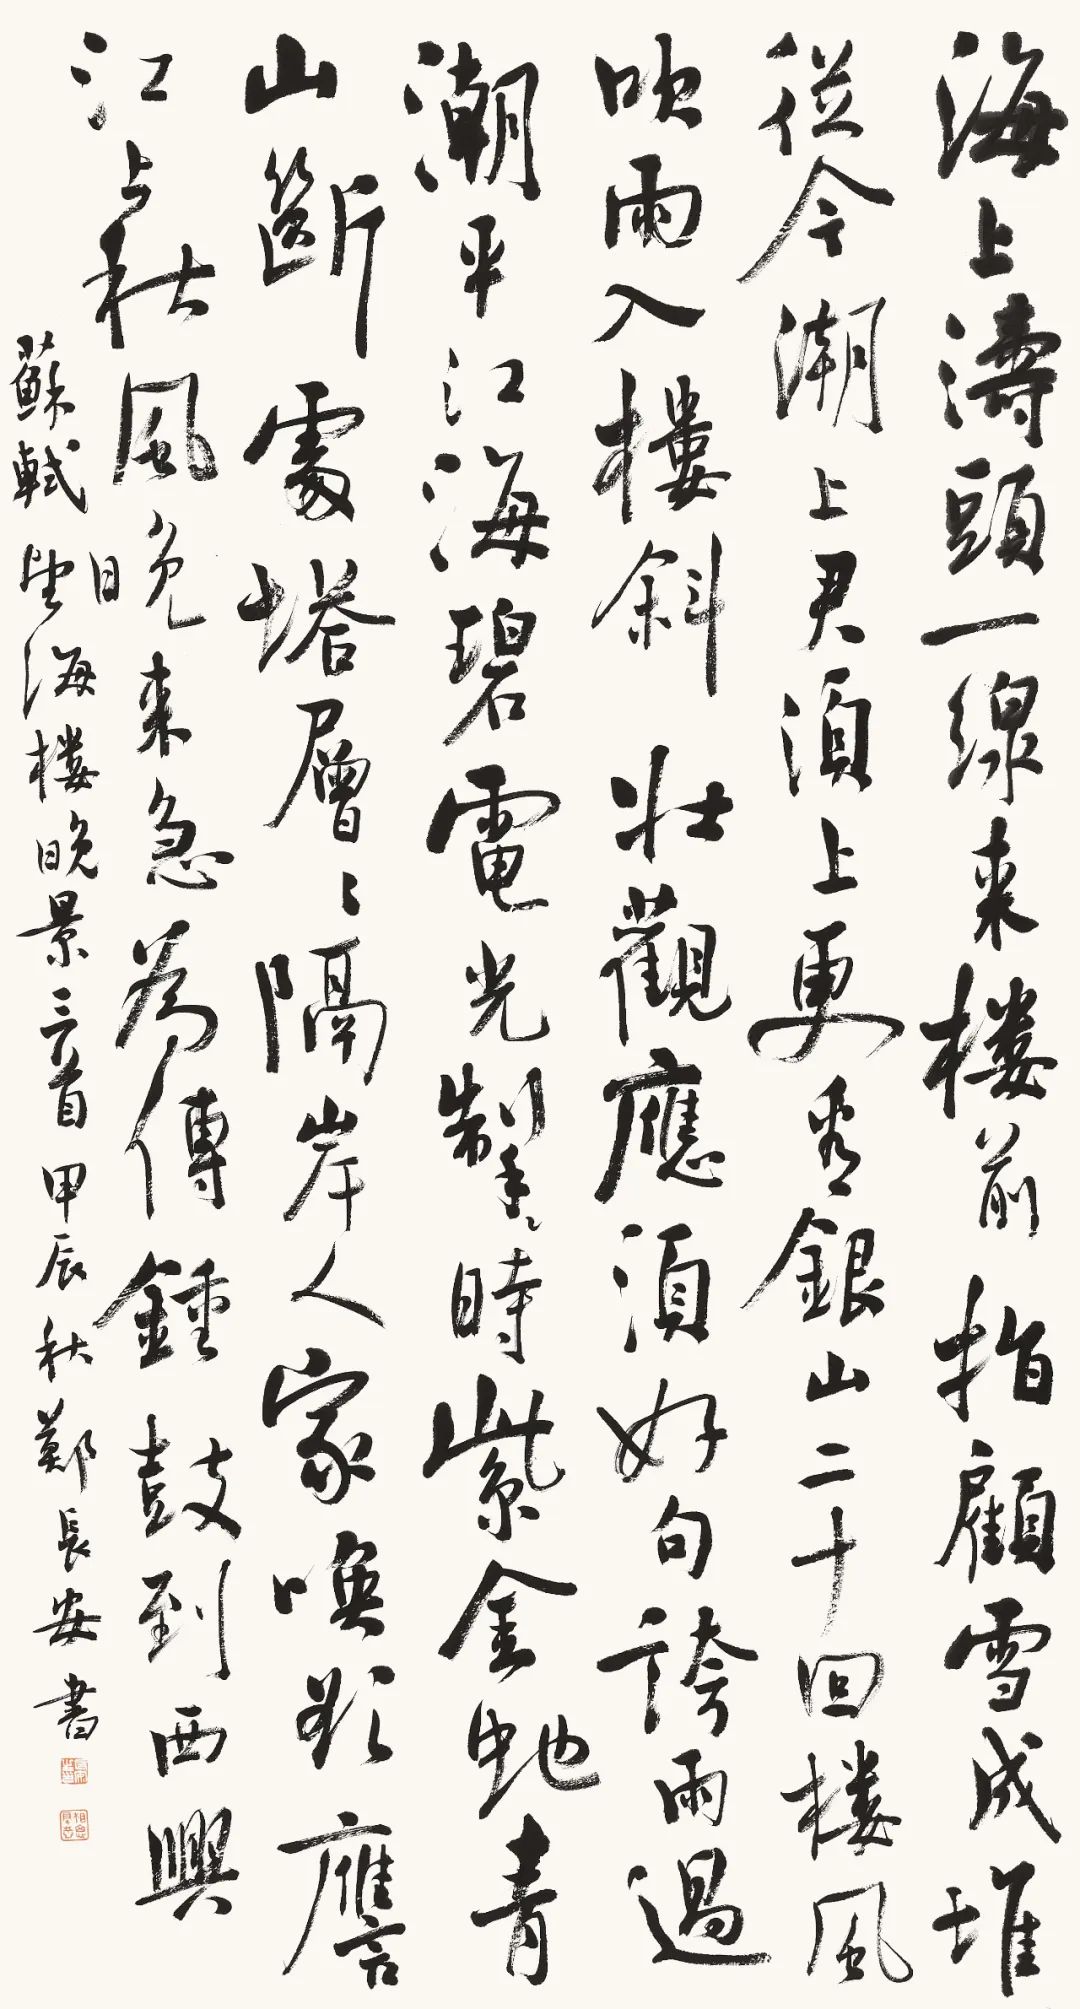 海上濤頭一線来楼前指顧雪成堆
從今潮上君須上更看銀山二十回楼風
吹雨入樓斜壯觀應須好句誇雨過
潮平江海碧電光掣時紫金虵青
山斷處塔層〻隔岸人家喚欲譍
江上秋風晚来急為傳鍾鼓到西興
蘇軾望海楼晚景三首甲辰秋鄭長安書